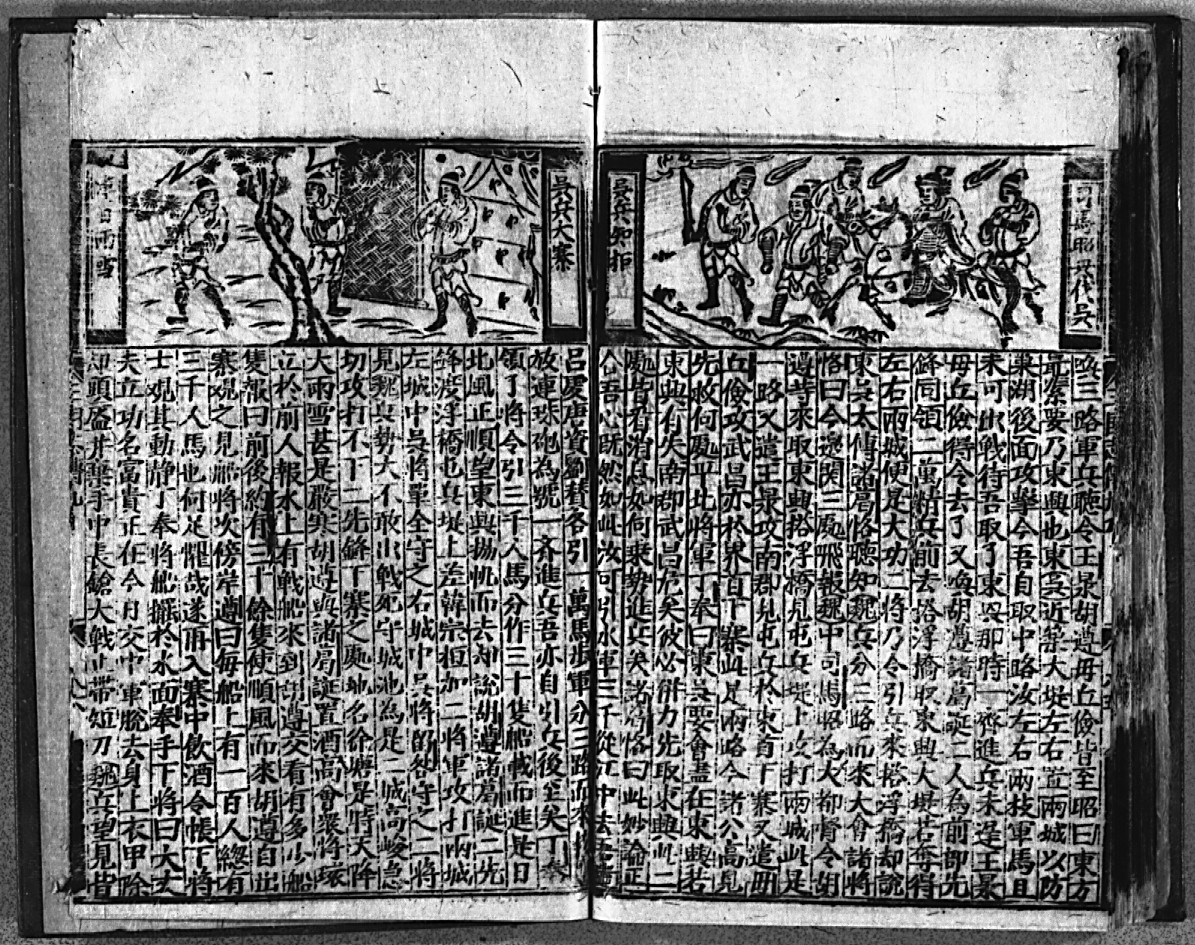 司馬昭兵伐吳
吳兵知拒
路三路軍兵聽令王昶胡遵毋丘儉皆至昭曰東方
最緊要乃東興也東吳近築大堤左右直兩城以防
巢湖後面攻擊今吾自取中路汝左右兩枝軍馬且
未可出戰待吾取了東吳那時一齊進兵未遲王昶
毋丘儉得令去了又喚胡遵諸葛誕二人為前部先
鋒同領二萬精兵前去搭浮橋取東興大堤若奪得
左右兩城便是大功二將乃令引兵來搭浮橋却說
東吳太傅諸葛恪聽知魏兵分三路而來大會諸將
恪曰今邊関三處飛報魏中司馬昭為大都督令胡
遵等來取東興搭浮橋見屯兵堤上攻打兩城此是
一路又遣王昶攻南郡見屯兵於東首下寨又遣毋
丘儉攻武昌亦於界首下寨此是兩路今諸公高見
先救何處平北將軍丁奉曰東吳要會盡在東興若
東興有失南郡武昌危矣彼必併力先取東興此二
處皆看消息如何乘勢進兵矣諸葛恪曰此妙論正
合吾心既然如此汝可引水軍三千從江中去吾
吳兵大寨
降日雨雪
呂慶唐資劉贊各引一萬馬步軍分三路而來
放連珠砲為號一齊進兵吾亦自引兵後至矣丁奉
領了將令引三千人馬分作三十隻船載而進是日
北風正順望東興揚帆而去却說胡遵諸葛誕二先
鋒渡浮橋屯兵堤上差韓宗桓加二將軍攻打兩城
左城中吳將單全守之右城中吳將留畧守之二將
見魏兵勢大不敢出戰死守城池為是二城高峻急
切攻打不下二先鋒下寨之處地名徐塘是時天降
大雨雪甚是嚴寒胡遵與諸葛誕置酒高會衆將環
立於前人報水上有戰船來到胡遵交看有多少船
隻報曰前後約有三十餘隻使順風而來胡遵自出
寨觀之見船將次傍岸遵曰每船上有一百人總有
三千人馬也何足懼哉遂再入寨中飲酒令帳下將
士觀其動静丁奉將船擺於水面奉手下將曰大丈
夫立功名富貴正在今日交中軍脫去身上衣甲除
却頭盔并棄手中長鎗大戟止帶短刀魏兵望見皆